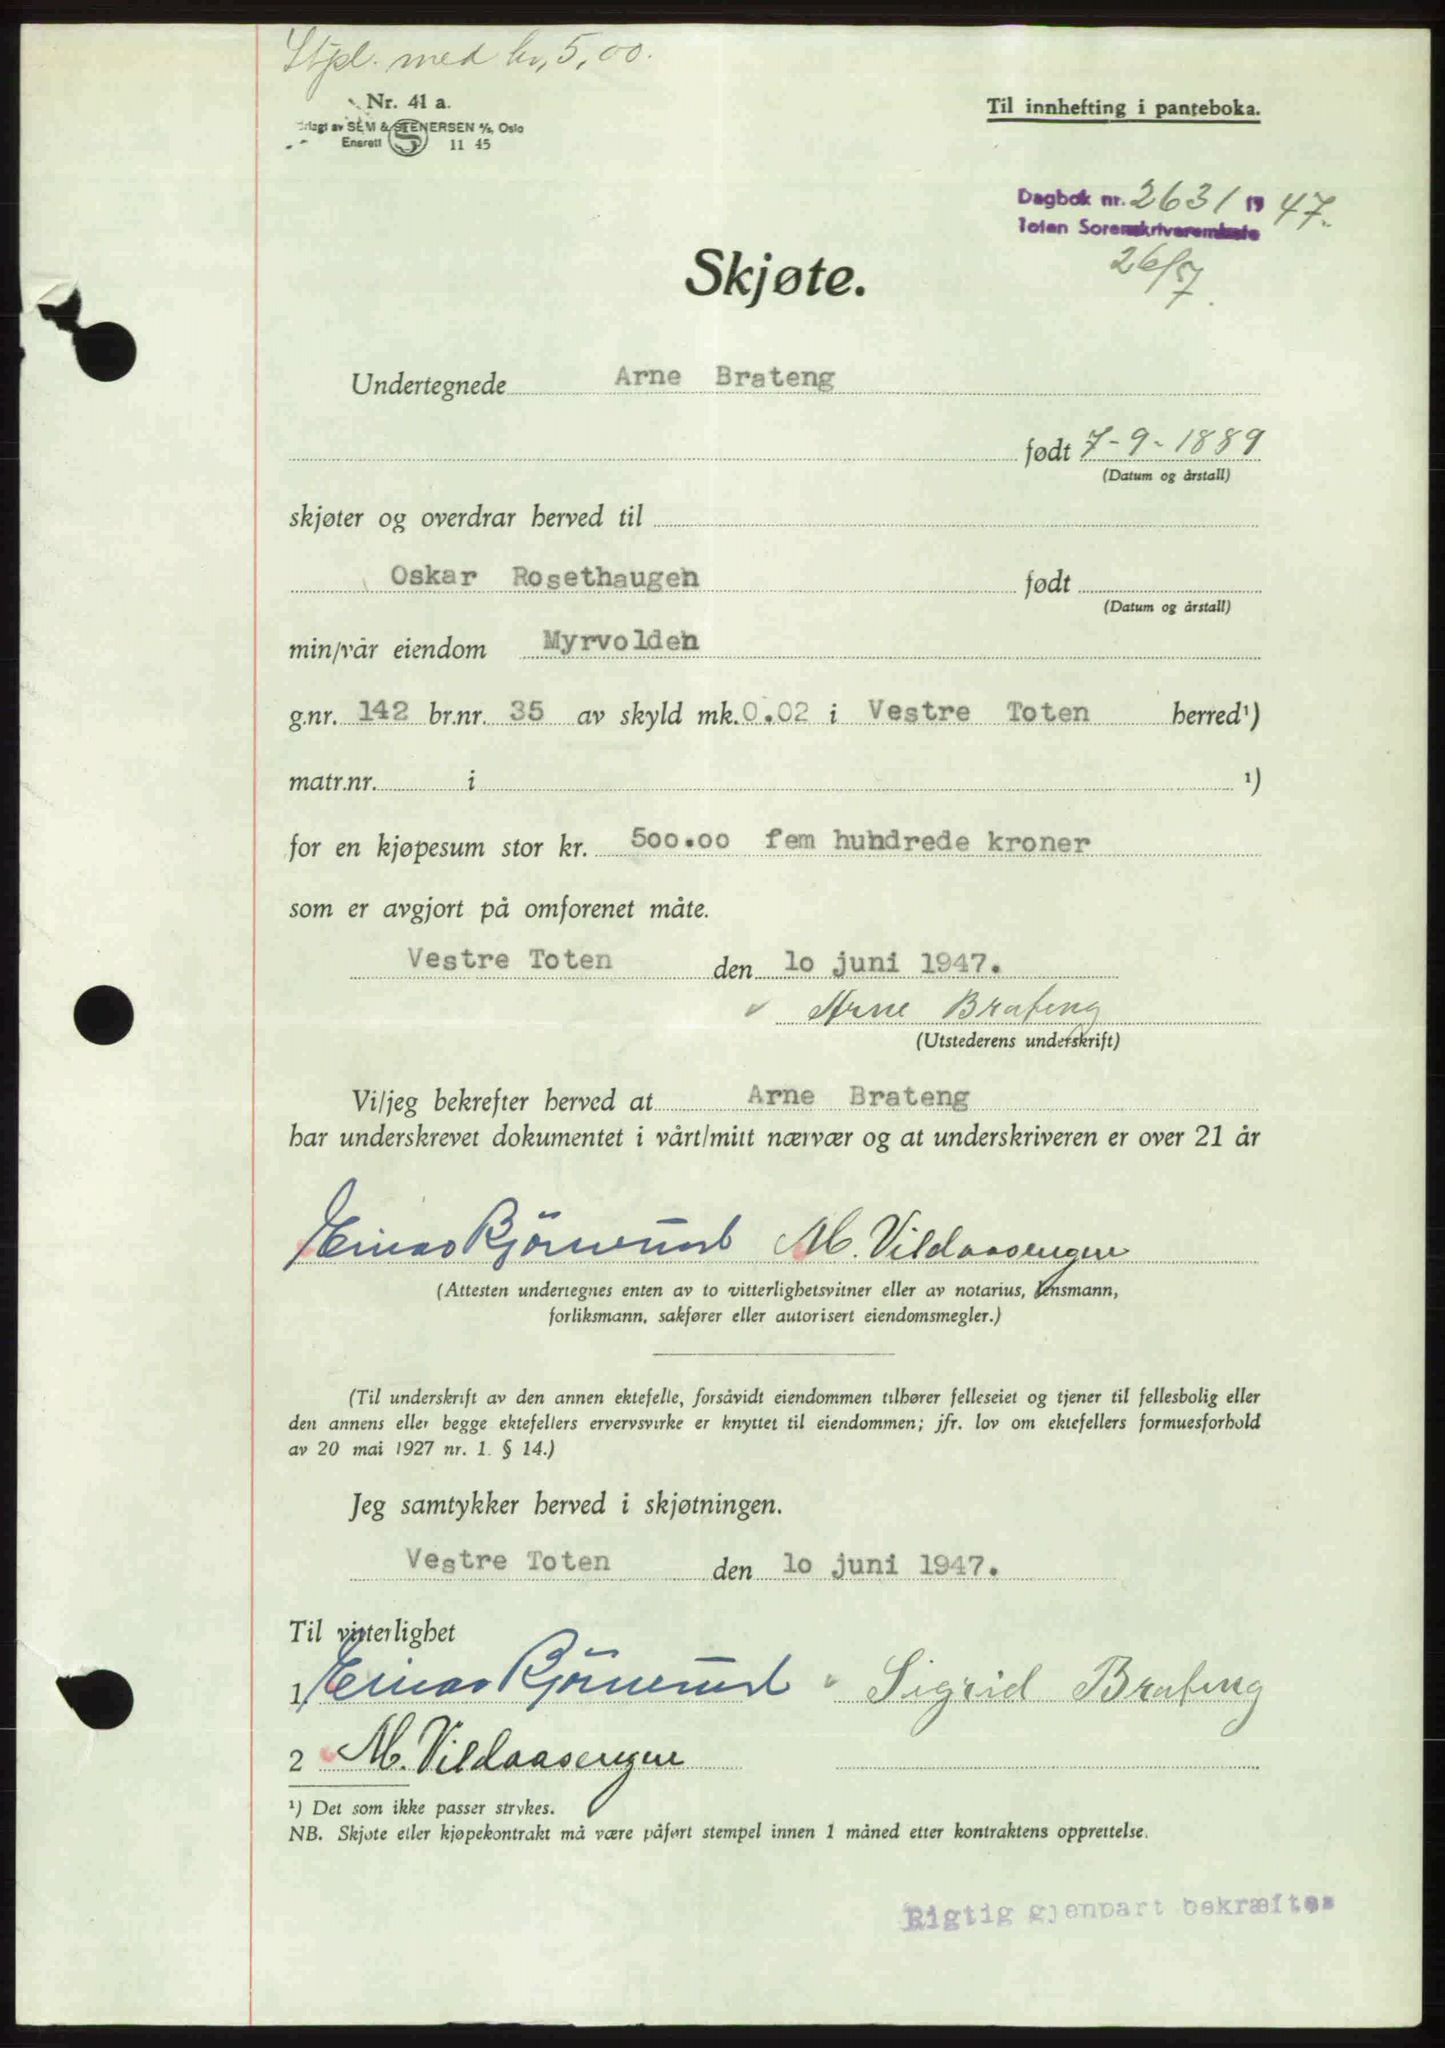 Stpl. med kr. 5,00.
Nr. 41 a.
Til innhefting i panteboka.
av SEM & STENERSEN A/S, Oslo
Enerett 11 45
Dagbok nr. 2631 19 47.
Toten Sorenskriverembete
26/7.
Skjøte.
Undertegnede Arne Brateng
født 7-9-1889
(Datum og årstall)
skjøter og overdrar herved til
Oskar Rosethaugen født
(Datum og årstall)
min/vår eiendom Myrvolden
g.nr. 142 br.nr. 35 av skyld mk. 0.02 i Vestre Toten herred¹)
matr.nr. i ¹)
for en kjøpesum stor kr. 500.00 fem hundrede kroner
som er avgjort på omforenet måte.
Vestre Toten den 10 juni 1947.
Arne Brateng
(Utstederens underskrift)
Vi/jeg bekrefter herved at Arne Brateng
har underskrevet dokumentet i vårt/mitt nærvær og at underskriveren er over 21 år
Einar Bjørnerud M. Vildaasengen
(Attesten undertegnes enten av to vitterlighetsvitner eller av notarius, lensmann,
forliksmann, sakfører eller autorisert eiendomsmegler.)
(Til underskrift av den annen ektefelle, forsåvidt eiendommen tilhører felleseiet og tjener til fellesbolig eller
den annens eller begge ektefellers ervervsvirke er knyttet til eiendommen; jfr. lov om ektefellers formuesforhold
av 20 mai 1927 nr. 1. § 14.)
Jeg samtykker herved i skjøtningen.
Vestre Toten den 10 juni 1947.
Til vitterlighet
1 Einar Bjørnerud Sigrid Brateng
2 M. Vildaasengen
¹) Det som ikke passer strykes.
NB. Skjøte eller kjøpekontrakt må være påført stempel innen 1 måned etter kontraktens opprettelse.
Rigtig gjenpart bekræftes